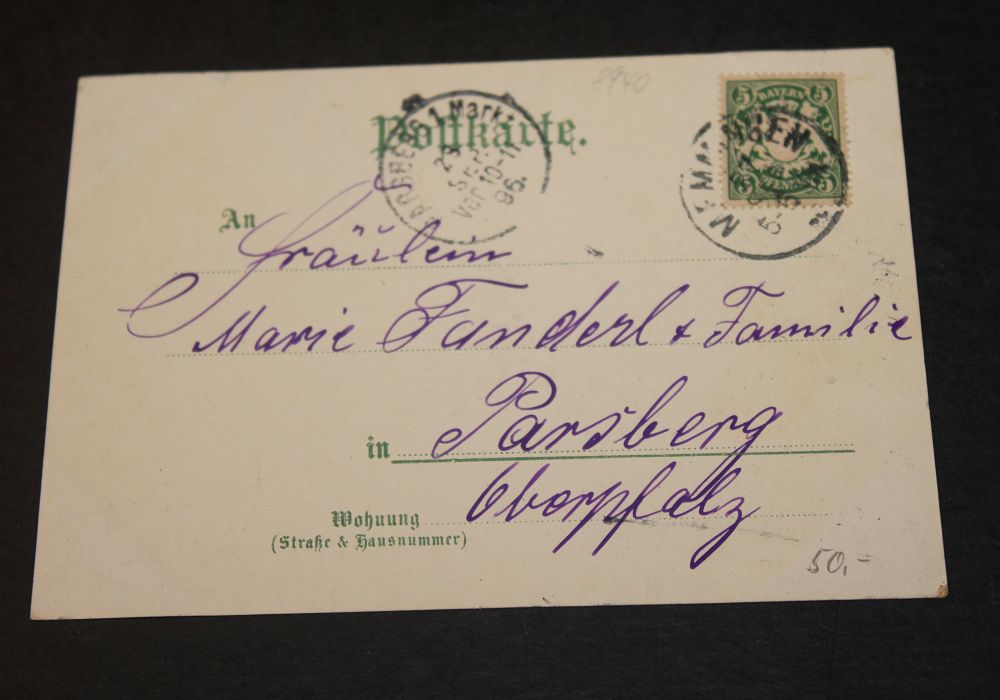 8940
Postkarte.
1 Markt
SEP.
Vor 10-11
96.
BAYERN
5 5
An Fräulein
Marie Fanderl & Familie
in Parsberg
Oberpfalz
Wohnung
(Straße & Hausnummer)
50,-